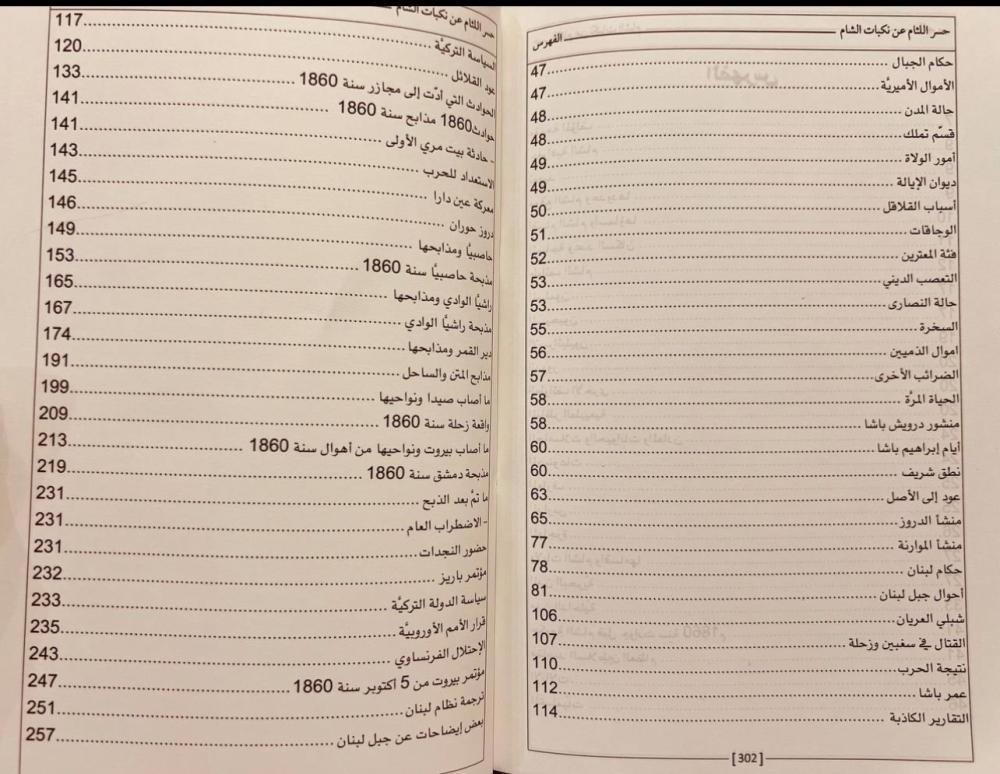 حسر اللثام عن نكبات الشام ــــــ الفهرس
حكام الجبال ........ 47
الأموال الأميريَّة ........ 47
حالة المدن ........ 48
قسّم تملك ........ 48
أمور الولاة ........ 49
ديوان الإيالة ........ 49
أسباب القلاقل ........ 50
الوجاقات ........ 51
فئة المعترين ........ 52
التعصب الديني ........ 53
حالة النصارى ........ 53
السخرة ........ 55
اموال الذميين ........ 56
الضرائب الأخرى ........ 57
الحياة المرَّة ........ 58
منشور درويش باشا ........ 58
أيام إبراهيم باشا ........ 60
نطق شريف ........ 60
عود إلى الأصل ........ 63
منشأ الدروز ........ 65
منشأ الموارنة ........ 77
حكام لبنان ........ 78
أحوال جبل لبنان ........ 81
شبلي العريان ........ 106
القتال في سغبين وزحلة ........ 107
نتيجة الحرب ........ 110
عمر باشا ........ 112
التقارير الكاذبة ........ 114
[302]
حسر اللثام عن نكبات الشام
السياسة التركيَّة ........ 117
عود القلائل ........ 120
الحوادث التي أدّت إلى مجازر سنة 1860 ........ 133
حوادث1860 مذابح سنة 1860 ........ 141
- حادثة بيت مري الأولى ........ 141
الاستعداد للحرب ........ 143
معركة عين دارا ........ 145
دروز حوران ........ 146
حاصبيَّا ومذابحها ........ 149
مذبحة حاصبيَّا سنة 1860 ........ 153
راشيَّا الوادي ومذابحها ........ 165
مذبحة راشيَّا الوادي ........ 167
دير القمر ومذابحها ........ 174
مذابح المتن والساحل ........ 191
ما أصاب صيدا ونواحيها ........ 199
واقعة زحلة سنة 1860 ........ 209
ما أصاب بيروت ونواحيها من أهوال سنة 1860 ........ 213
مذبحة دمشق سنة 1860 ........ 219
ما تمَّ بعد الذبح ........ 231
- الاضطراب العام ........ 231
حضور النجدات ........ 231
مؤتمر باريز ........ 232
سياسة الدولة التركيَّة ........ 233
قرار الأمم الأوروبيَّة ........ 235
الإحتلال الفرنساوي ........ 243
مؤتمر بيروت من 5 اكتوبر سنة 1860 ........ 247
ترجمة نظام لبنان ........ 251
بعض إيضاحات عن جبل لبنان ........ 257